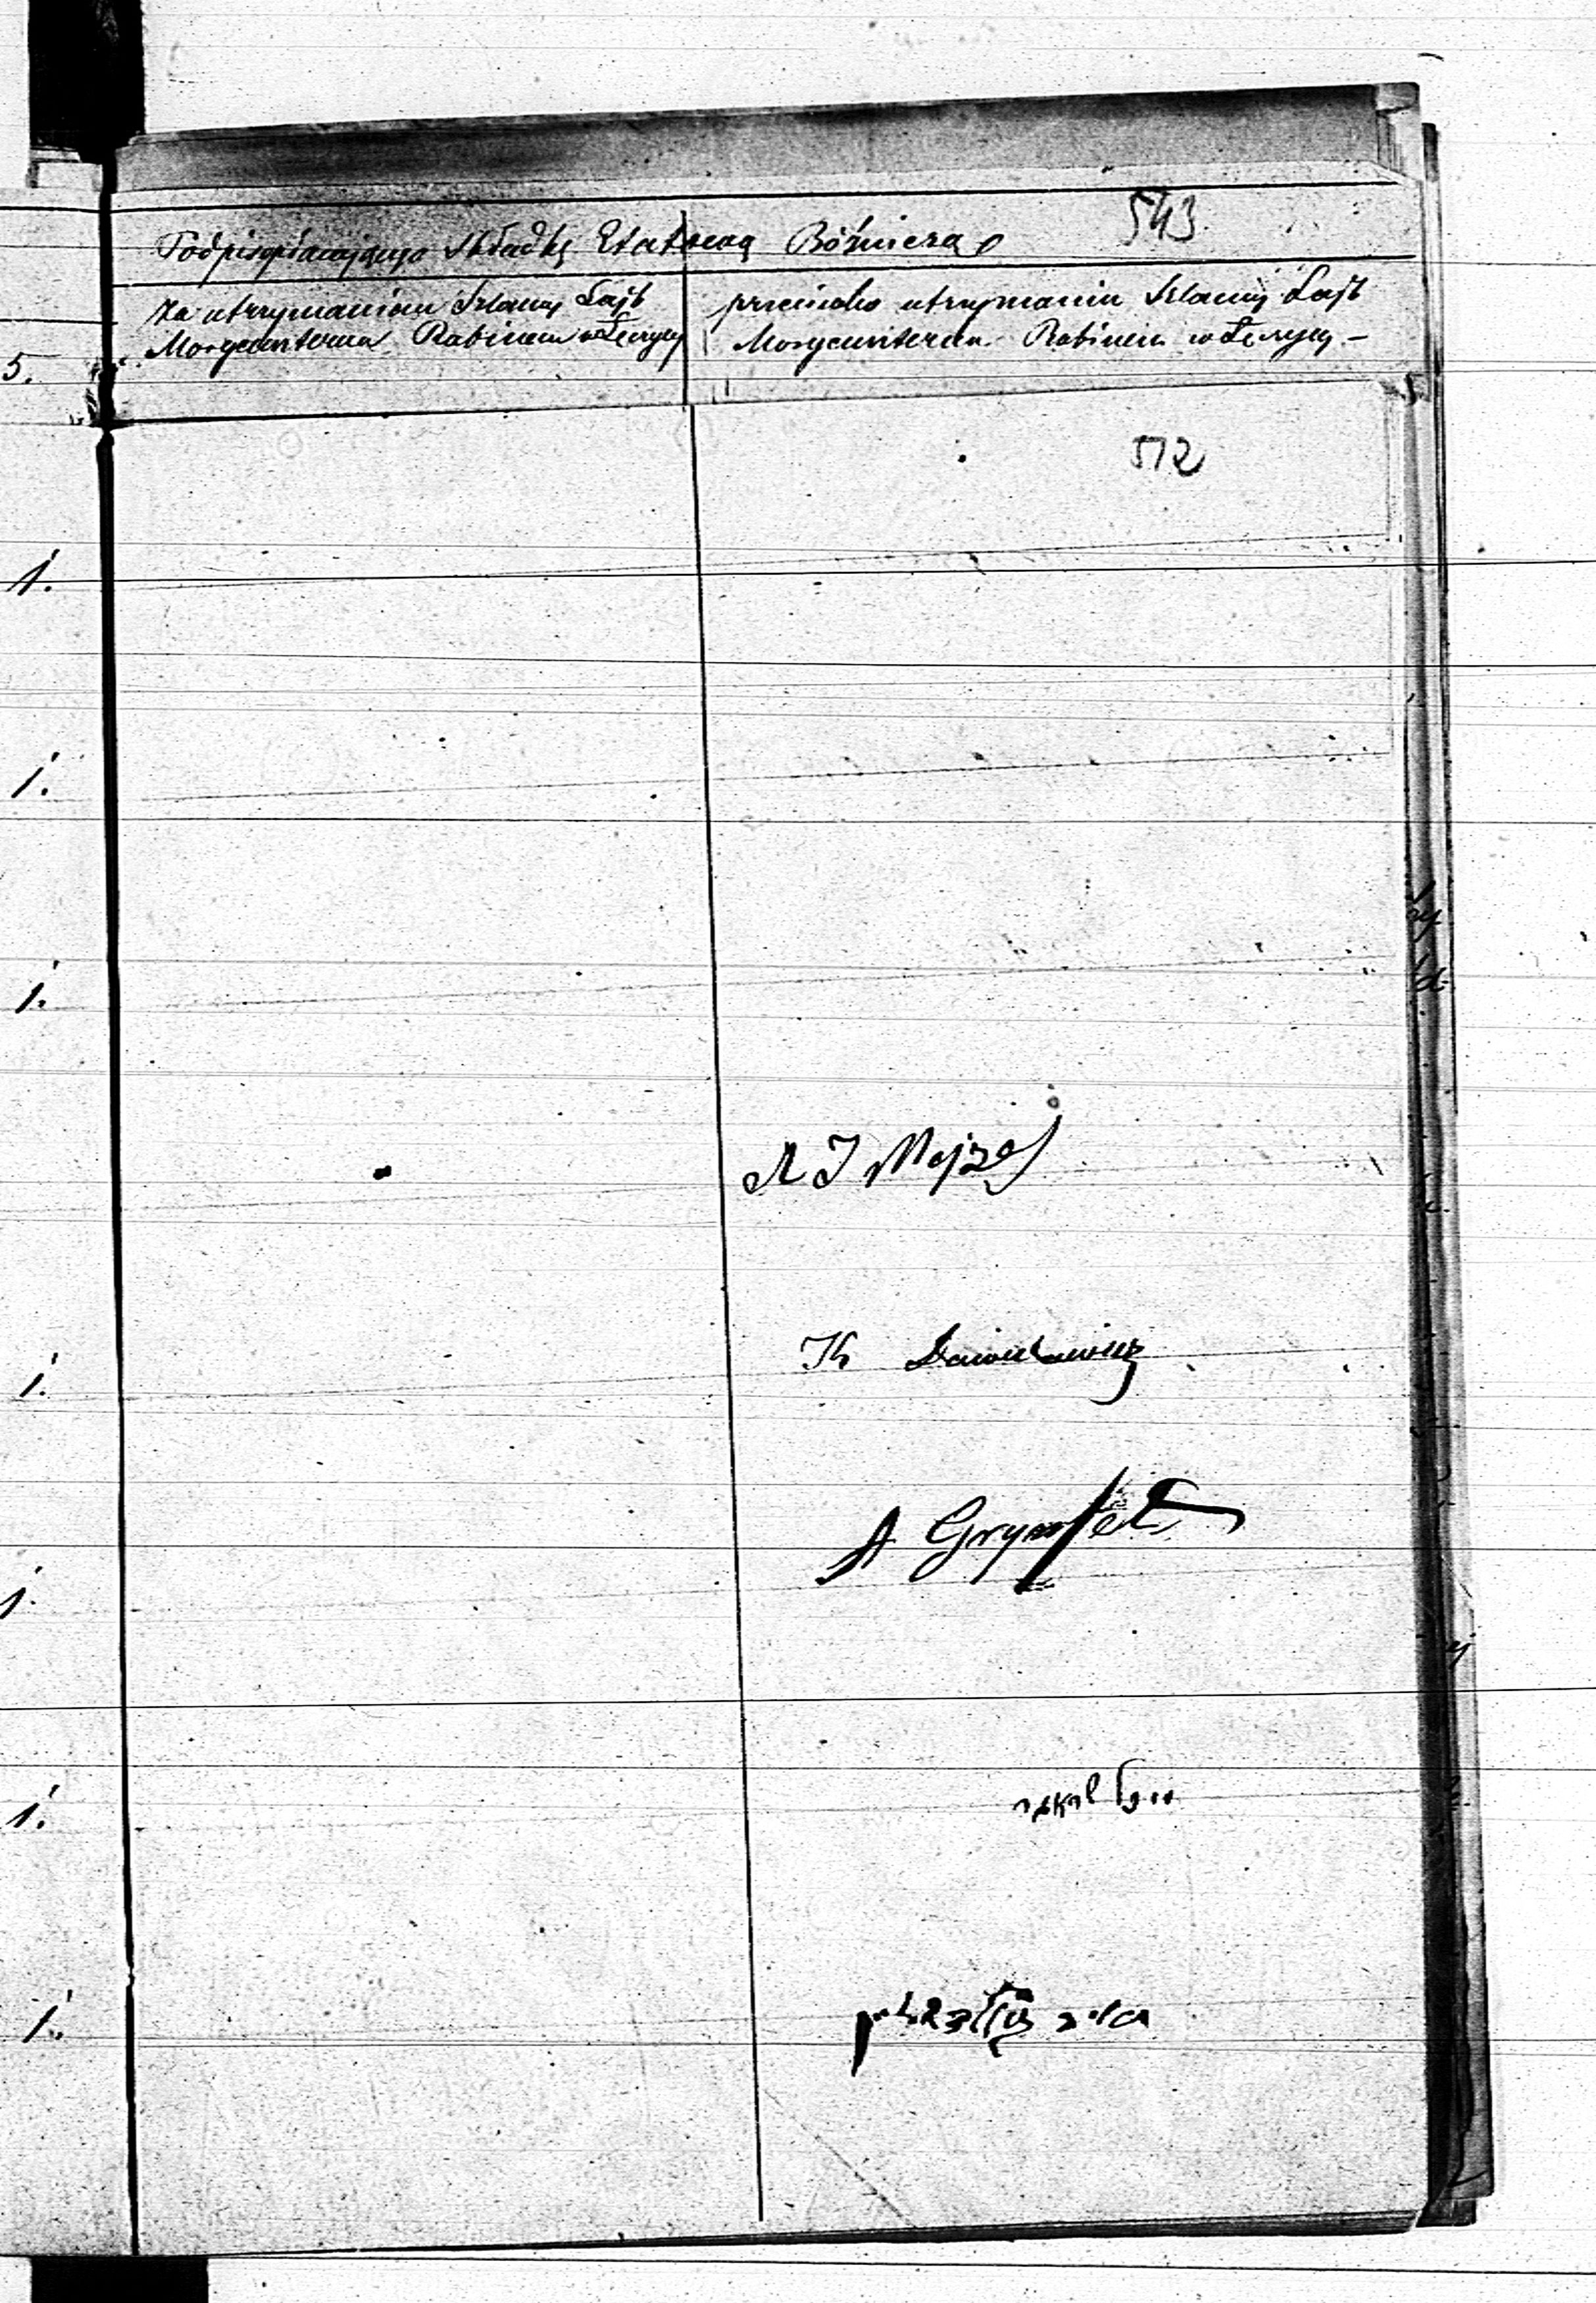 543
Podpis opłacającego Składkę Etatową Bóżniczą
za utrzymaniem Szlamy Lajb
Morgensterna Rabinem w Łęczycy
przeciwko utrzymaniu Szlamy Lajb
Morgensterna Rabinem w Łęczycy –
5.
512
1.
1.
1.
A I Majzel
1.
H Dawidowicz
A Grynfeld
1.
1.
1.